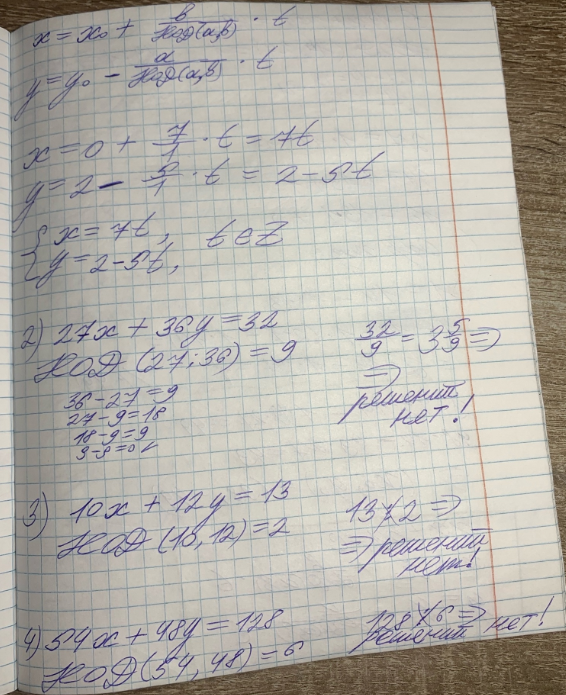 x = x₀ + b/НОД(a,b) · t
y = y₀ - a/НОД(a,b) · t
x = 0 + 7/1 · t = 7t
y = 2 - 5/1 · t = 2 - 5t
{ x = 7t,
{ y = 2 - 5t, t ∈ Z
2) 27x + 36y = 32
НОД (27; 36) = 9
36 - 27 = 9
27 - 9 = 18
18 - 9 = 9
9 - 9 = 0
32/9 = 3 5/9 ⇒
⇒
решений
нет!
3) 10x + 12y = 13
НОД (10, 12) = 2
13 ⋮̸ 2 ⇒
⇒ решений
нет!
4) 54x + 48y = 128
НОД (54, 48) = 6
128 ⋮̸ 6 ⇒
решений нет!